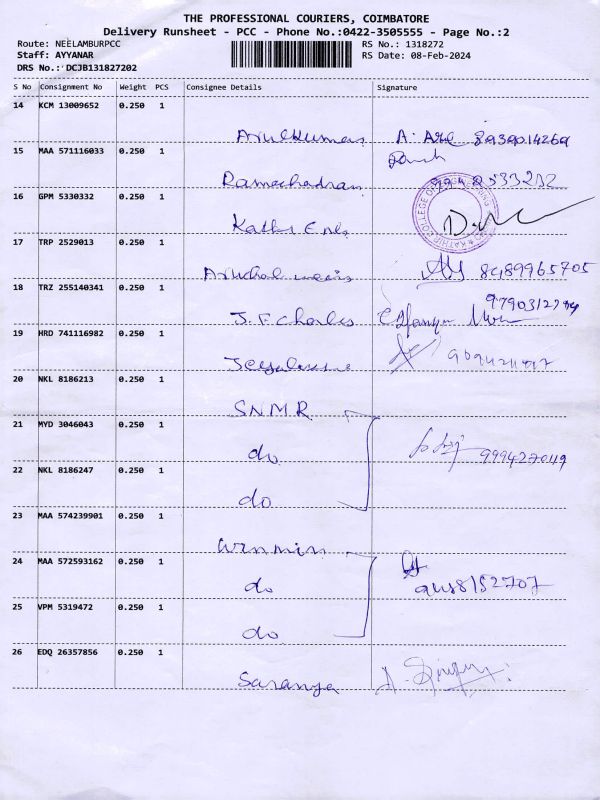 THE PROFESSIONAL COURIERS, COIMBATORE
Delivery Runsheet - PCC - Phone No.:0422-3505555 - Page No.:2
Route: NEELAMBURPCC
RS No.: 1318272
Staff: AYYANAR
RS Date: 08-Feb-2024
DRS No.: DCJB131827202
S No Consignment No Weight PCS Consignee Details Signature
14 KCM 13009652 0.250 1
Arulkumar A. 8939014269
15 MAA 571116033 0.250 1
Ramachadran
16 GPM 5330332 0.250 1
COLLEGE OF ENGINEERING KATHIR
Kathir
17 TRP 2529013 0.250 1
8489965705
18 TRZ 255140341 0.250 1
J.F. Charles
19 HRD 741116982 0.250 1
20 NKL 8186213 0.250 1
S.N.M.R
21 MYD 3046043 0.250 1
do 9994270119
22 NKL 8186247 0.250 1
do
23 MAA 574239901 0.250 1
24 MAA 572593162 0.250 1
do
25 VPM 5319472 0.250 1
do
26 EDQ 26357856 0.250 1
Saranya